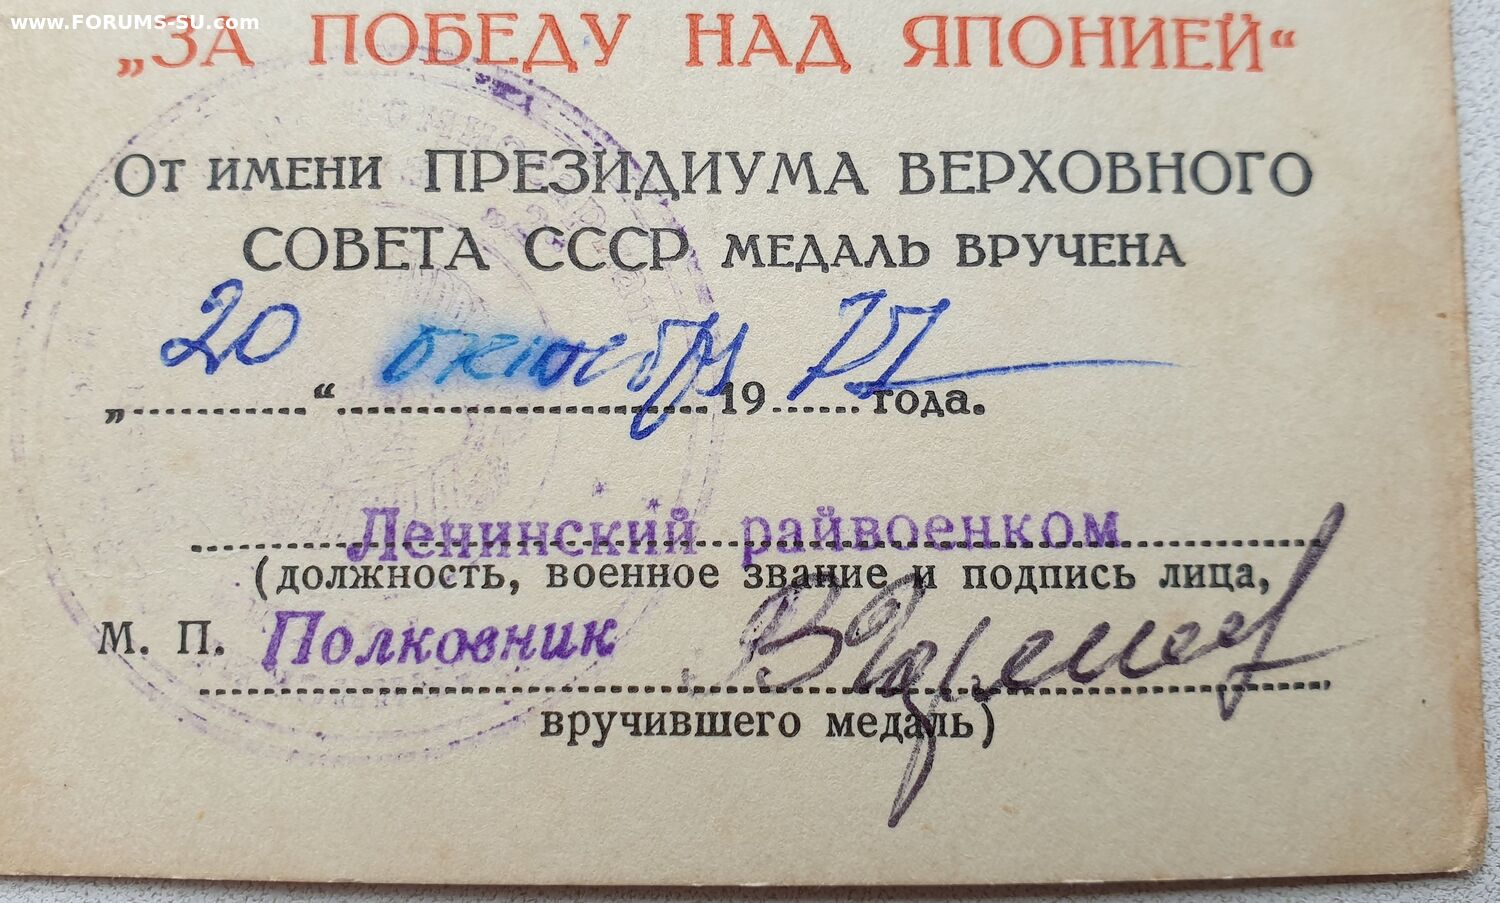 www.FORUMS-SU.com
„ЗА ПОБЕДУ НАД ЯПОНИЕЙ“
От имени ПРЕЗИДИУМА ВЕРХОВНОГО
СОВЕТА СССР медаль вручена
„20“ октября 19 года.
Ленинский райвоенком
(должность, военное звание и подпись лица,
М. П. Полковник
вручившего медаль)